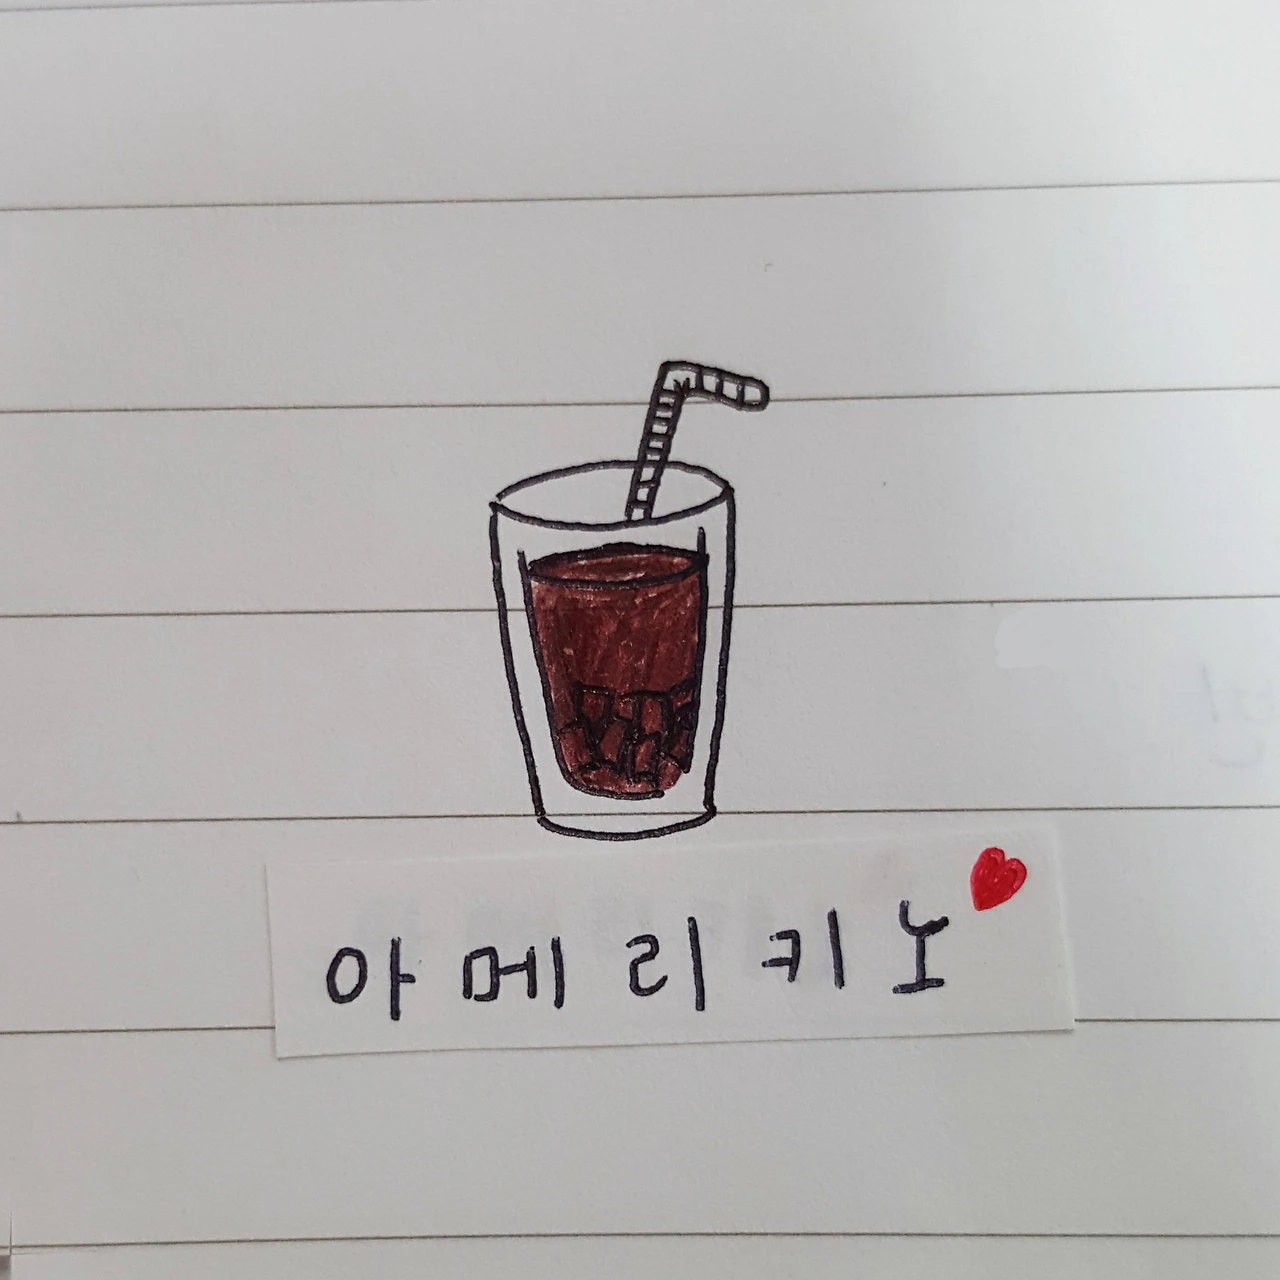 아메리키노